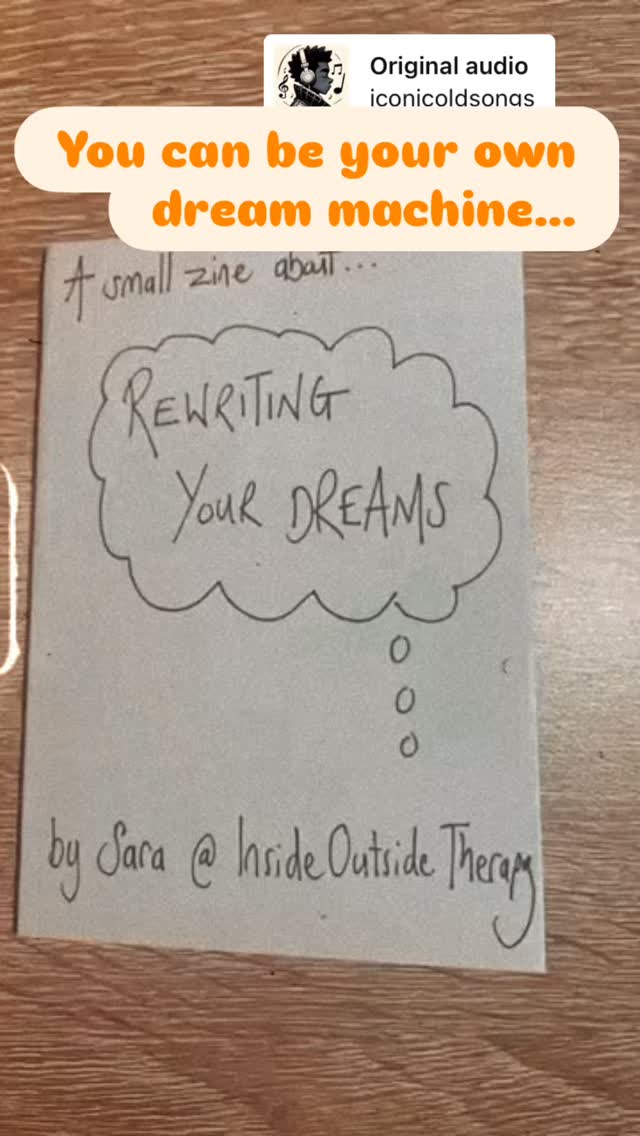 Original audio
iconicoldsongs
You can be your own
dream machine...
A small zine about...
REWRITING
YOUR DREAMS
by Sara @ Inside Outside Therapy